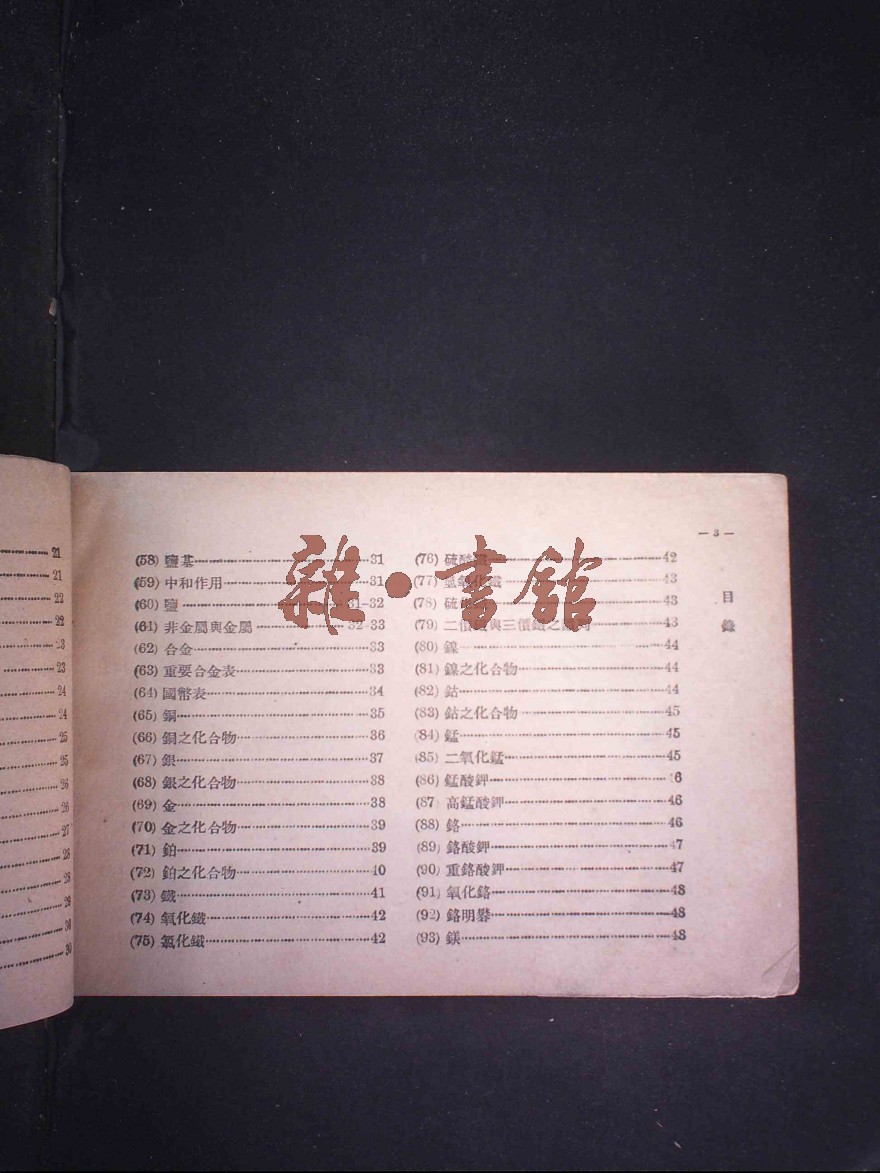 21
21
22
22
23
23
24
24
25
25
26
26
27
28
28
29
30
30
— 3 —
目錄
(58) 鹽基 31
(59) 中和作用 31
(60) 鹽 31-32
(61) 非金屬與金屬 32-33
(62) 合金 33
(63) 重要合金表 33
(64) 國幣表 34
(65) 銅 35
(66) 銅之化合物 36
(67) 銀 37
(68) 銀之化合物 38
(69) 金 38
(70) 金之化合物 39
(71) 鉑 39
(72) 鉑之化合物 40
(73) 鐵 41
(74) 氧化鐵 42
(75) 氯化鐵 42
(76) 硫酸 42
(77) 氫氧化鐵 43
(78) 硫 43
(79) 二價鐵與三價鐵之 43
(80) 鎳 44
(81) 鎳之化合物 44
(82) 鈷 44
(83) 鈷之化合物 45
(84) 錳 45
(85) 二氧化錳 45
(86) 錳酸鉀 6
(87) 高錳酸鉀 46
(88) 鉻 46
(89) 鉻酸鉀 47
(90) 重鉻酸鉀 47
(91) 氧化鉻 48
(92) 鉻明礬 48
(93) 鎂 48
雜·書館